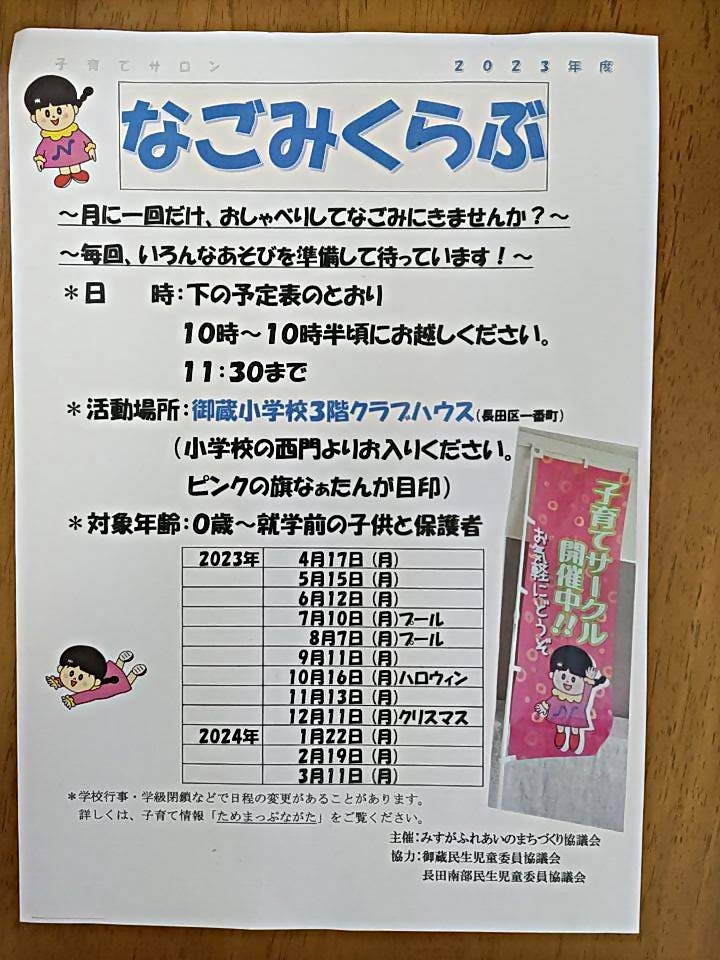 子育てサロン 2023年度
なごみくらぶ
～月に一回だけ、おしゃべりしてなごみにきませんか？～
～毎回、いろんなあそびを準備して待っています！～
＊日 時：下の予定表のとおり
10時～10時半頃にお越しください。
11：30まで
＊活動場所：御蔵小学校3階クラブハウス（長田区一番町）
（小学校の西門よりお入りください。
ピンクの旗なぁたんが目印）
＊対象年齢：0歳～就学前の子供と保護者
2023年 4月17日（月）
5月15日（月）
6月12日（月）
7月10日（月）プール
8月7日（月）プール
9月11日（月）
10月16日（月）ハロウィン
11月13日（月）
12月11日（月）クリスマス
2024年 1月22日（月）
2月19日（月）
3月11日（月）
子育てサークル
開催中！！
お気軽にどうぞ
＊学校行事・学級閉鎖などで日程の変更があることがあります。
詳しくは、子育て情報「ためまっぷながた」をご覧ください。
主催：みすがふれあいのまちづくり協議会
協力：御蔵民生児童委員協議会
長田南部民生児童委員協議会